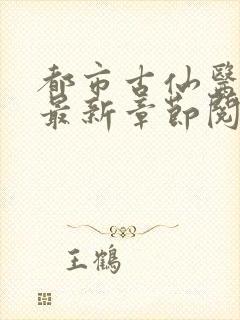 都市古仙醫
最新章節閱
王鶴